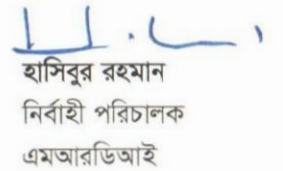 হাসিবুর রহমান
নির্বাহী পরিচালক
এমআরডিআই